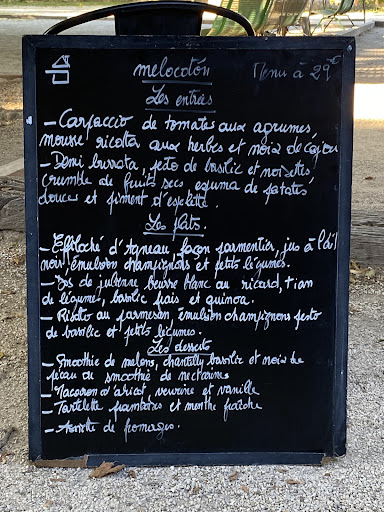 melocotón Menu à 29€
Les entrés
- Carpaccio de tomates aux agrumes,
mousse ricotta aux herbes et noix de cajou
- Demi burrata, pesto de basilic et noisettes,
crumble de fruits secs espuma de patates
douces et piment d'espelette.
Les plats.
- Effiloché d'agneau façon parmentier, jus à l'ail
noir, émulsion champignons et petits légumes.
- Dos de julienne beurre blanc au ricard, tian
de légumes, basilic frais et quinoa.
- Risoto au parmesan, émulsion champignons pesto
de basilic et petits légumes.
Les desserts
- Smoothie de melons, chantilly basilic et noix de
pécan ou smoothie de nectarines
- Macaron abricot verveine et vanille
- Tartelette framboises et menthe fraîche
- Assiette de fromages.